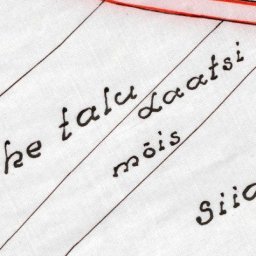 he talu
Laatsi
mõis
Siid